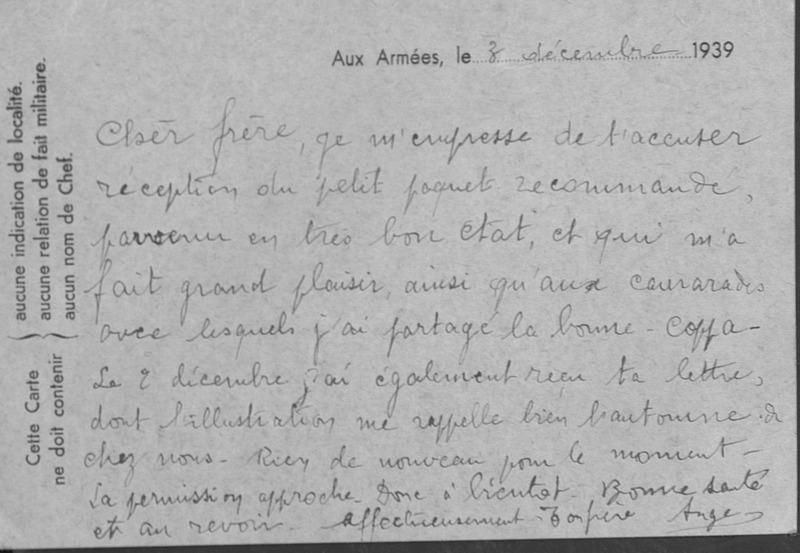 Aux Armées, le 3 décembre 1939
Cette Carte ne doit contenir
aucune indication de localité.
aucune relation de fait militaire.
aucun nom de Chef.
Cher frère, je m'empresse de t'accuser
réception du petit paquet recommandé,
parvenu en très bon état, et qui m'a
fait grand plaisir, ainsi qu'aux camarades
avec lesquels j'ai partagé la bonne - coppa -
Le 2 décembre j'ai également reçu ta lettre,
dont l'illustration me rappelle bien l'automne de
chez nous - Rien de nouveau pour le moment -
La permission approche - Donc à bientôt - Bonne santé
et au revoir - Affectueusement - Ton frère Ange